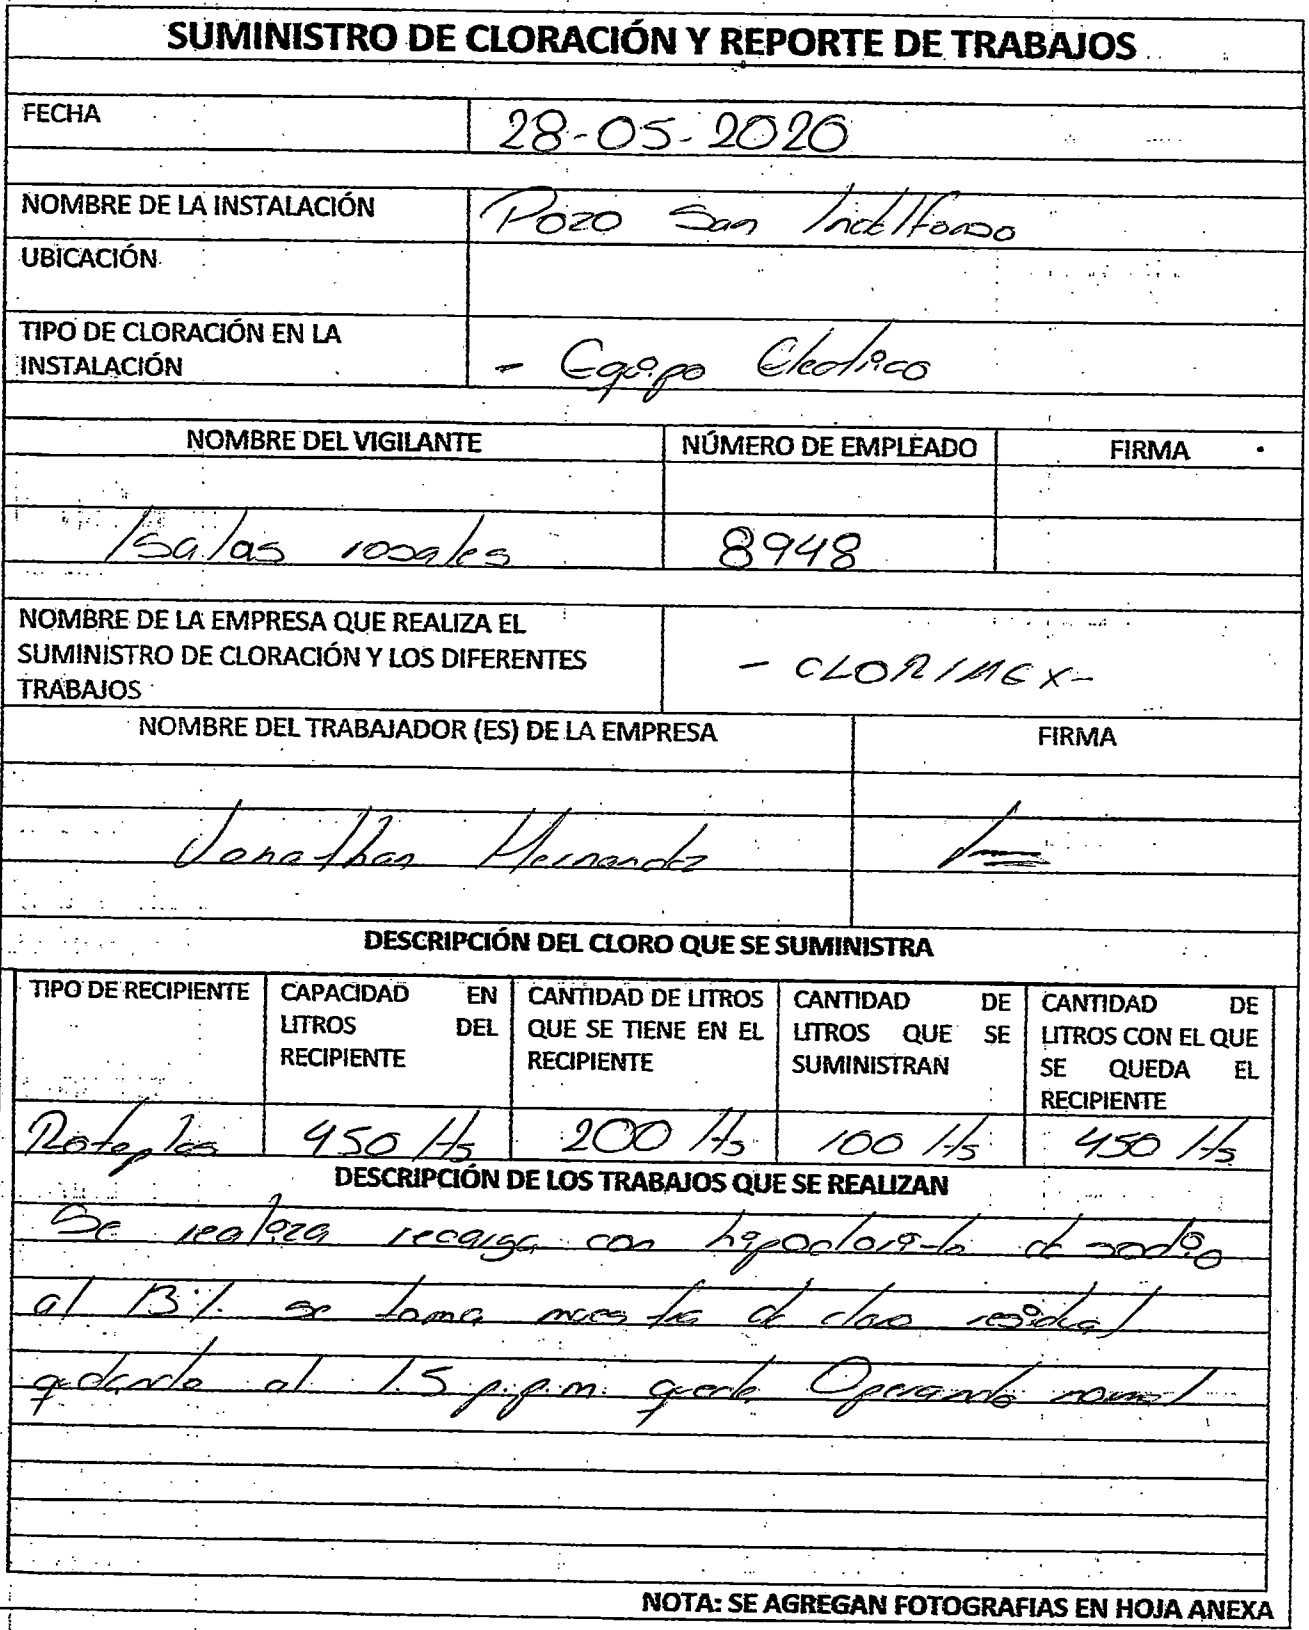 SUMINISTRO DE CLORACIÓN Y REPORTE DE TRABAJOS
FECHA 28-05-2020
NOMBRE DE LA INSTALACIÓN Pozo San
UBICACIÓN
TIPO DE CLORACIÓN EN LA
INSTALACIÓN - Equipo Electrico
NOMBRE DEL VIGILANTE NÚMERO DE EMPLEADO FIRMA
rosales 8948
NOMBRE DE LA EMPRESA QUE REALIZA EL
SUMINISTRO DE CLORACIÓN Y LOS DIFERENTES
TRABAJOS
- CLORIMEX-
NOMBRE DEL TRABAJADOR (ES) DE LA EMPRESA FIRMA
Jonathan Hernandez
DESCRIPCIÓN DEL CLORO QUE SE SUMINISTRA
TIPO DE RECIPIENTE
CAPACIDAD EN
LITROS DEL
RECIPIENTE
CANTIDAD DE LITROS
QUE SE TIENE EN EL
RECIPIENTE
CANTIDAD DE
LITROS QUE SE
SUMINISTRAN
CANTIDAD DE
LITROS CON EL QUE
SE QUEDA EL
RECIPIENTE
Rotoplas 450 lts 200 lts 100 lts 450 lts
DESCRIPCIÓN DE LOS TRABAJOS QUE SE REALIZAN
Se realiza recarga con hipoclorito de sodio
al 13% se toma muestra de cloro residual
al 1.5 p.p.m. queda Operando normal
NOTA: SE AGREGAN FOTOGRAFIAS EN HOJA ANEXA